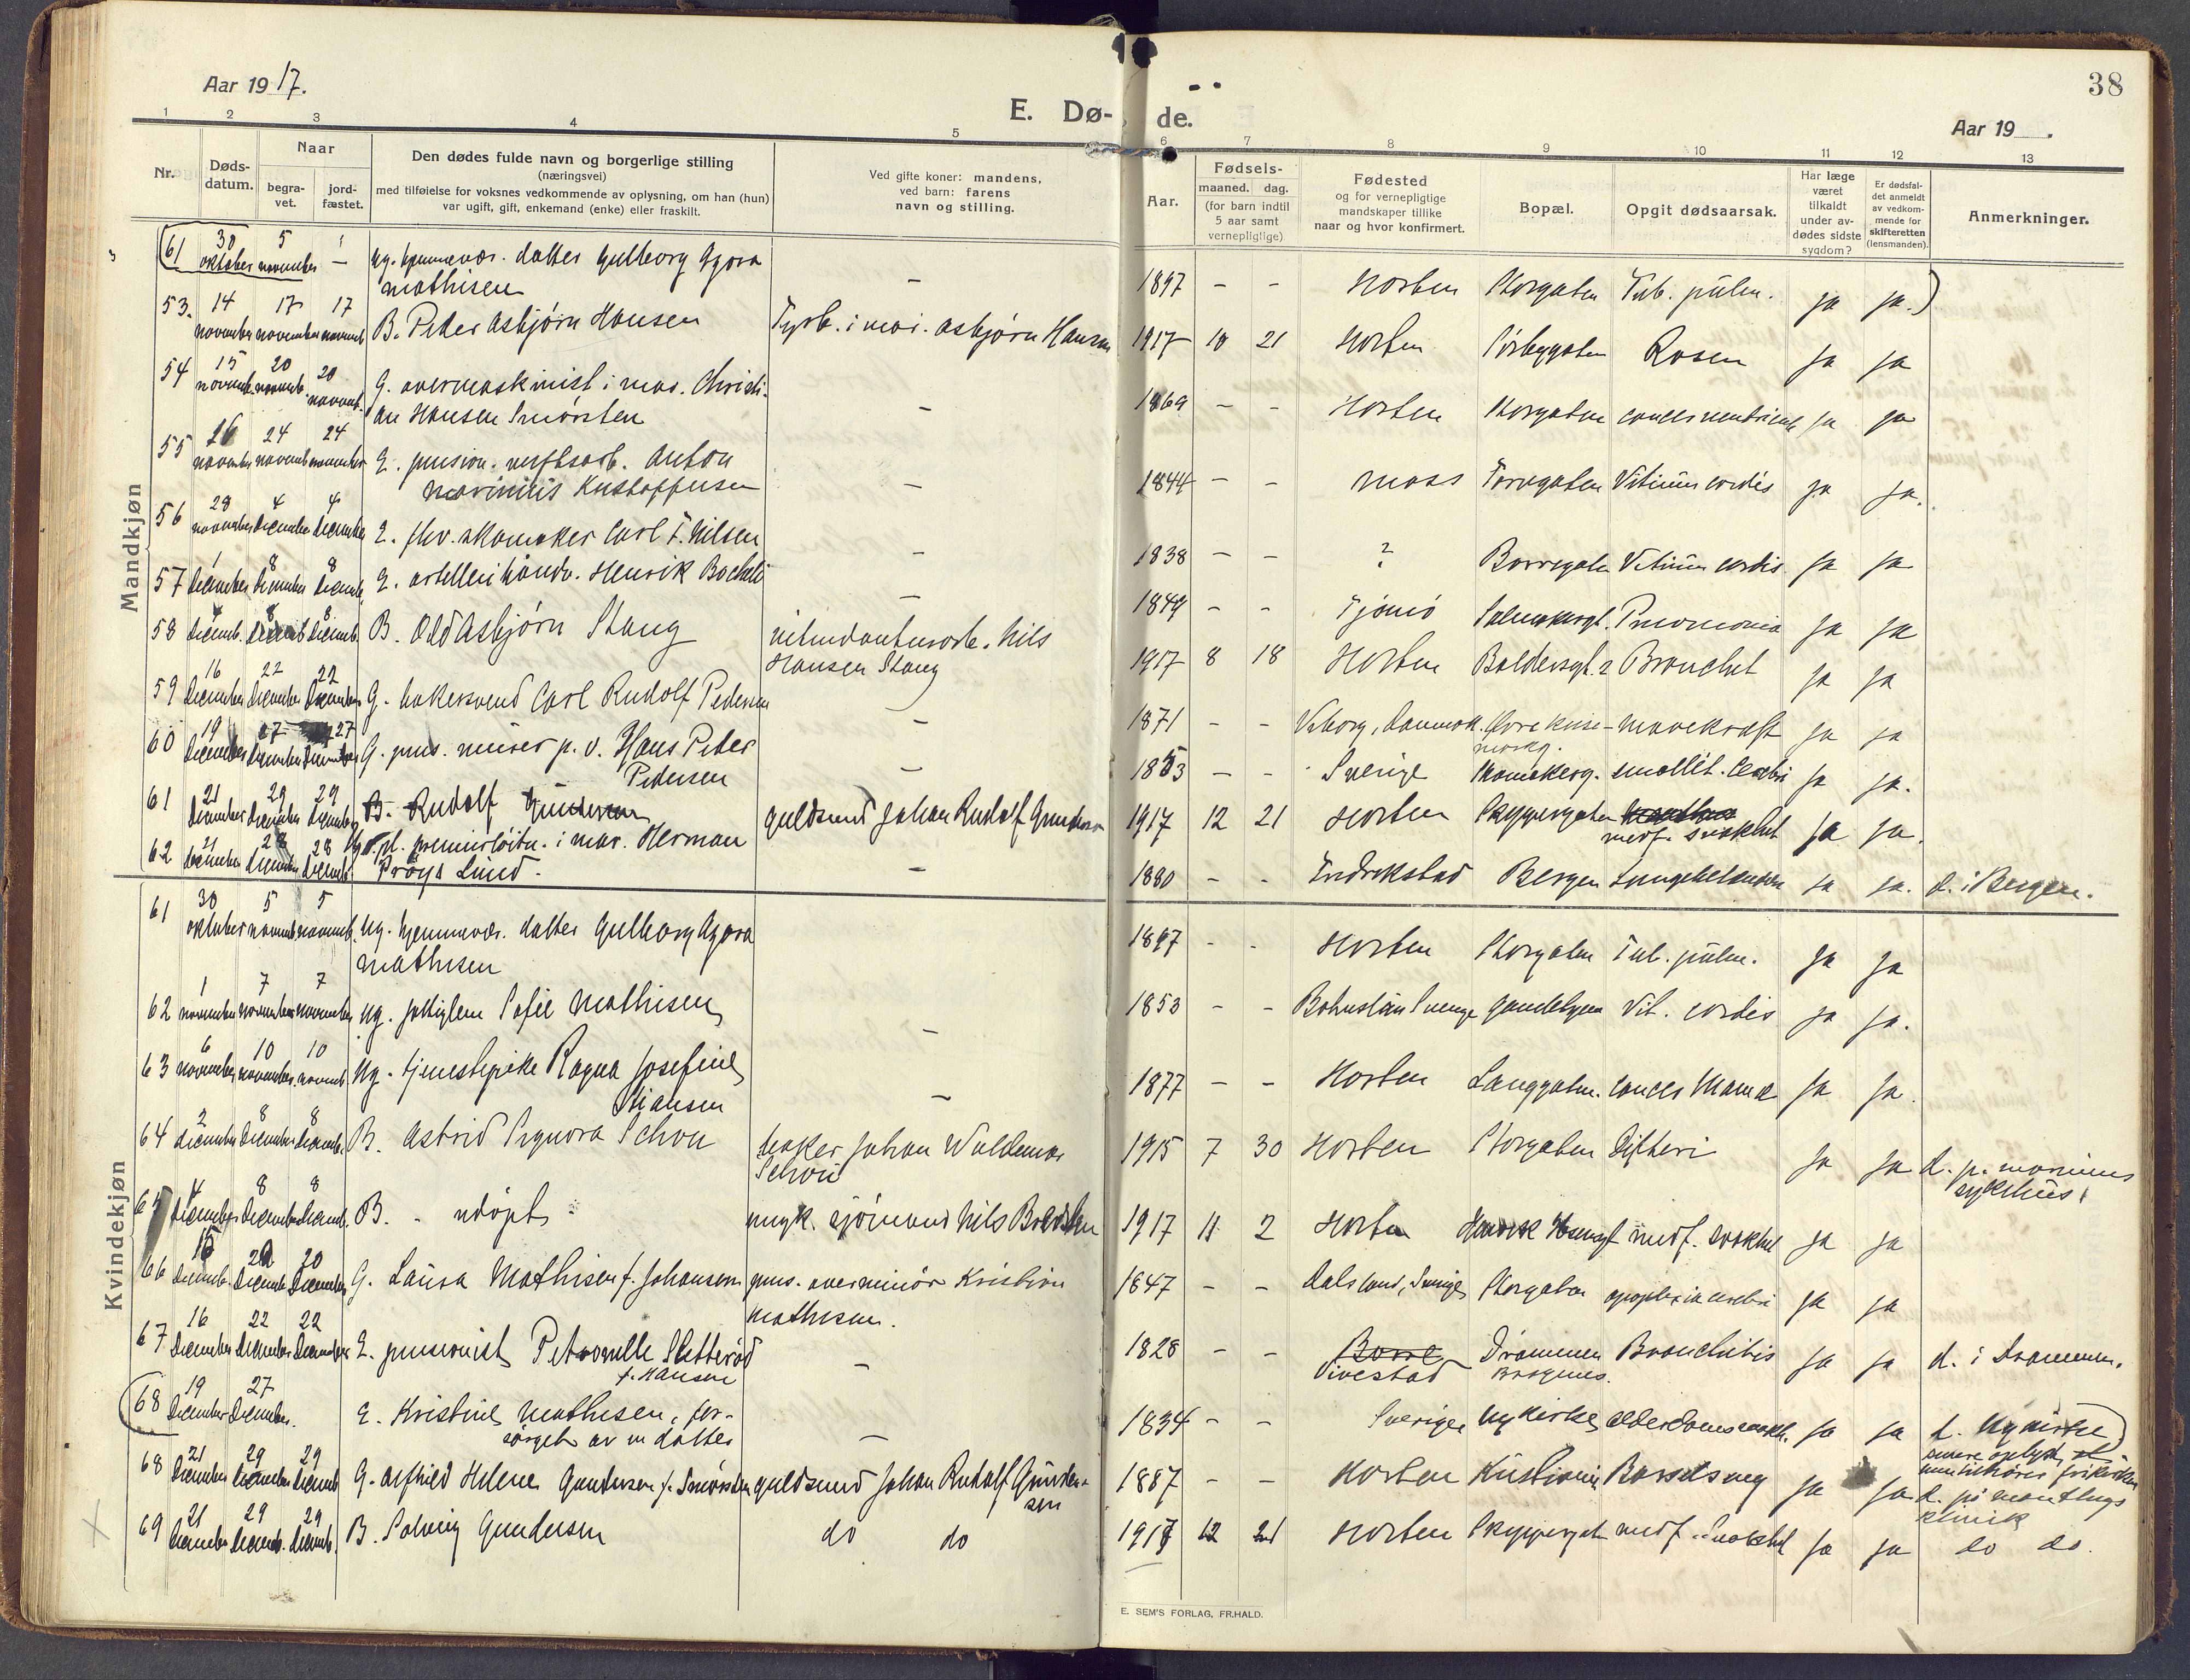 38
Aar 1917.
E. Dø- de.
Aar 19 .
1 2 3 4 5 6 7 8 9 10 11 12 13
Nr.
Døds-
datum.
Naar
begra-
vet.
jord-
fæstet.
Den dødes fulde navn og borgerlige stilling
(næringsvei)
med tilføielse for voksnes vedkommende av oplysning, om han (hun)
var ugift, gift, enkemand (enke) eller fraskilt.
Ved gifte koner: mandens,
ved barn: farens
navn og stilling.
Aar.
Fødsels-
maaned. dag.
(for barn indtil
5 aar samt
vernepligtige)
Fødested
og for vernepligtige
mandskaper tillike
naar og hvor konfirmert.
Bopæl.
Opgit dødsaarsak.
Har læge
været
tilkaldt
under av-
dødes sidste
sygdom?
Er dødsfal-
det anmeldt
av vedkom-
mende for
skifteretten
(lensmanden).
Anmerkninger.
Mandkjøn
61 30 oktober 5 november — ug. hjemmevær. datter Gulborg Agora
Mathisen — 1897 - - Horten Storgaten Tub. pulm. ja ja.
53. 14 november 17 november 17 novemb. B. Peder Asbjørn Hansen Fyrb. i mar. Asbjørn Hansen 1917 10 21 Horten Rosen ja ja
54 15 novemb. 20 novemb. 20 novemb. G. overmaskinist i mar. Christi-
an Hansen Smørsten — 1869 - - Horten Storgaten cancer ventriculi ja ja
55 november 24 novemb. 24 november E. pension. verftsarb. Anton
Marinius Kristoffersen — 1844 - - Moss Torvgaten Vitium cordis ja ja.
56 28 november 4 december 4 december E. fhv. skomaker Carl F. Nilsen — 1838 - - ? Borregaten Vitium cordis ja ja
57 1 december 8 december 8 decemb. E. artillerihåndv. Henrik — 1849 - - Tjømø Pneumonia ja ja
58 4 decemb. 8 decemb. 8 decemb. B. Odd Asbjørn Stang Nils
Hansen Stang 1917 8 18 Horten Baldersgt. 2 Bronchit ja ja
59 16 december 22 december 22 december G. bakersvend Carl Rudolf Pedersen — 1871 - - Viborg, Danmark ja ja
60 19 december 27 december 27 december G. pens. minør p. v. Hans Peder
Pedersen — 1853 - - Sverige Skomakerg. ja ja.
61 21 december 29 december 29 december B. Rudolf Gundersen guldsmed Johan Rudolf Gundersen 1917 12 21 Horten Skippergaten medf. svakhet ja ja.
62 21 december 28 december 28 decemb. premierløitn. i mar. Herman
Prøys Lund. — 1880 - - Fredrikstad Bergen Lungebetændelse ja ja. d. i Bergen.
Kvindekjøn
61 30 oktober 5 novemb. 5 novemb. ug. hjemmevær. datter Gulborg Agora
Mathisen 1897 - - Horten Storgaten Tub. pulm. ja ja
62 1 november 7 november 7 november ug. Sofie Mathisen — 1853 - - Bohuslän Sverige Gamlebyen Vit. cordis ja ja.
63 6 november 10 november. 10 novemb. ug. tjenestepike Ragna Josefine
Stiansen — 1877 - - Horten Langgaten. cancer mamæ ja ja.
64 2 december 8 december 8 decemb. B. Astrid Signora Schou baker Johan Waldemar
Schou 1915 7 30 Horten Storgaten Difteri ja ja d. p. marinens
sykehus.
65 4 december 8 december 8 decemb. B. - udøpt - sjømand Nils 1917 11 2 Horten medf. svakhet ja ja
66 15 decemb. 20 decemb. 20 december G. Laura Mathisen f. Johansen pens. overminør Kristian
Mathisen. 1847 - - Dalsland, Sverige Storgaten apoplexia cerebri ja ja
67 16 december 22 december 22 december E. pensionist Petronelle Sletterød
f. Hansen — 1828 - - Borre
Vivestad Drammen Bronchitis ja ja d. i Drammen.
68 19 december 27 december. E. Kristine Mathisen, for-
sørget av en datter — 1834 - - Sverige Nykirke alderdomssvakh. ja ja d. Nykirke
68 21 december 29 december 29 decemb. G. Asfrild Helene Gundersen f. Smørsten guldsmed Johan Rudolf Gunder-
sen 1887 - - Horten Kristiania Barselseng ja ja d. på
klinik
69 21 december 29 decemb. 29 decemb. B. Solveig Gundersen do do 1917 12 21 Horten Skippergaten medf. svakhet ja ja do do.
E. SEM'S FORLAG, FR.HALD.